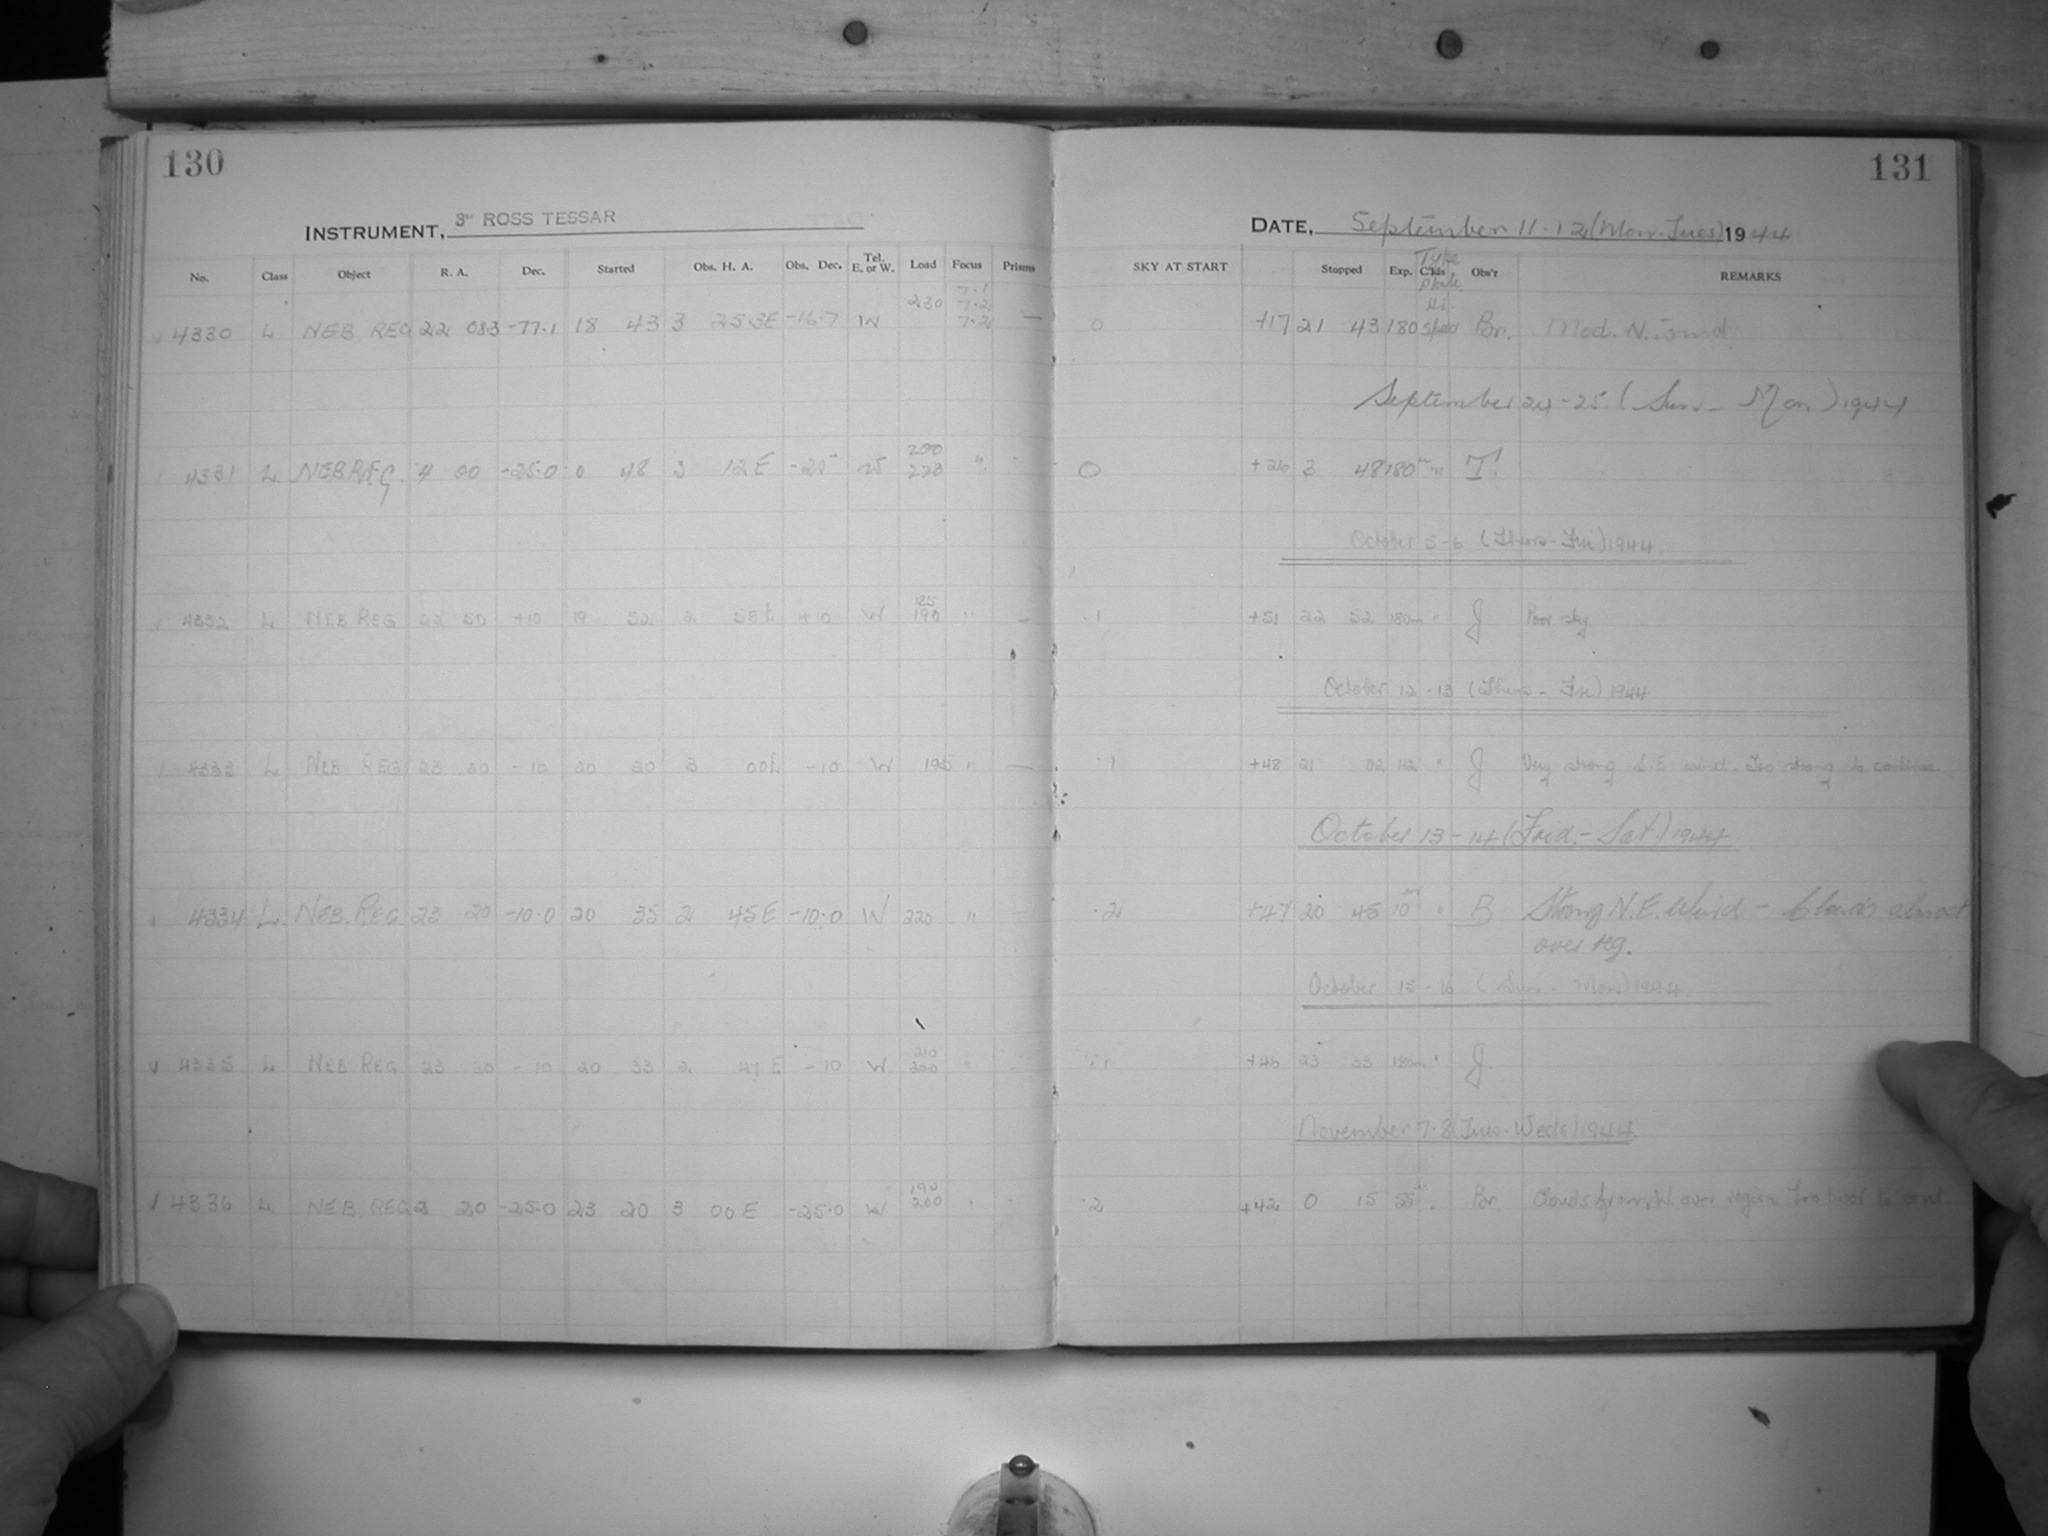 130
131
INSTRUMENT, 3" ROSS TESSAR
DATE, September 11-12 (Mon-Tues) 1944
No. Class Object R. A. Dec. Started Obs. H. A. Obs. Dec. Tel. E. or W. Load Focus Prisms SKY AT START Stopped Exp. C'lds Type Plate Obs'r REMARKS
7.1
230 7.2 Hi-
√ 4330 L NEB REG 22 08.3 -77.1 18 43 3 25.3E -16.7 W 7.2 — 0 +17 21 43 180 Speed Bn. Mod. N. wind
September 24-25 (Sun - Mon) 1944
200
4331 L NEB REG. 4 00 -25.0 0 48 3 12E -25 W 220 " 0 +26 3 48 180m " T.
October 5-6 (Thurs-Fri) 1944
185
√ 4332 L NEB REG 23 50 +10 19 52 2 58E +10 W 190 " — .1 +51 22 52 180m " J Poor sky
October 12-13 (Thurs - Fri) 1944
√ 4333 L NEB. REG 23 20 -10 20 20 3 00E -10 W 195 " — .1 +48 21 02 42 " J Very strong S.E. wind. Too strong to continue
October 13-14 (Frid.- Sat.) 1944
4334 L. NEB. REG. 23 20 -10.0 20 35 2 45E -10.0 W 220 " — .2 +47 20 45 10m " B Strong N.E. Wind - Clouds almost
over reg.
October 15-16 (Sun - Mon) 1944
210
√ 4335 L NEB REG 23 20 -10 20 33 2 47E -10 W 200 " — .1 +46 23 33 180m " J.
November 7-8 (Tues-Weds) 1944
190
√ 4336 L NEB REG 2 20 -25.0 23 20 3 00E -25.0 W 200 " .2 +42 0 15 55m " Bn. Clouds from W. over region Too poor to cont